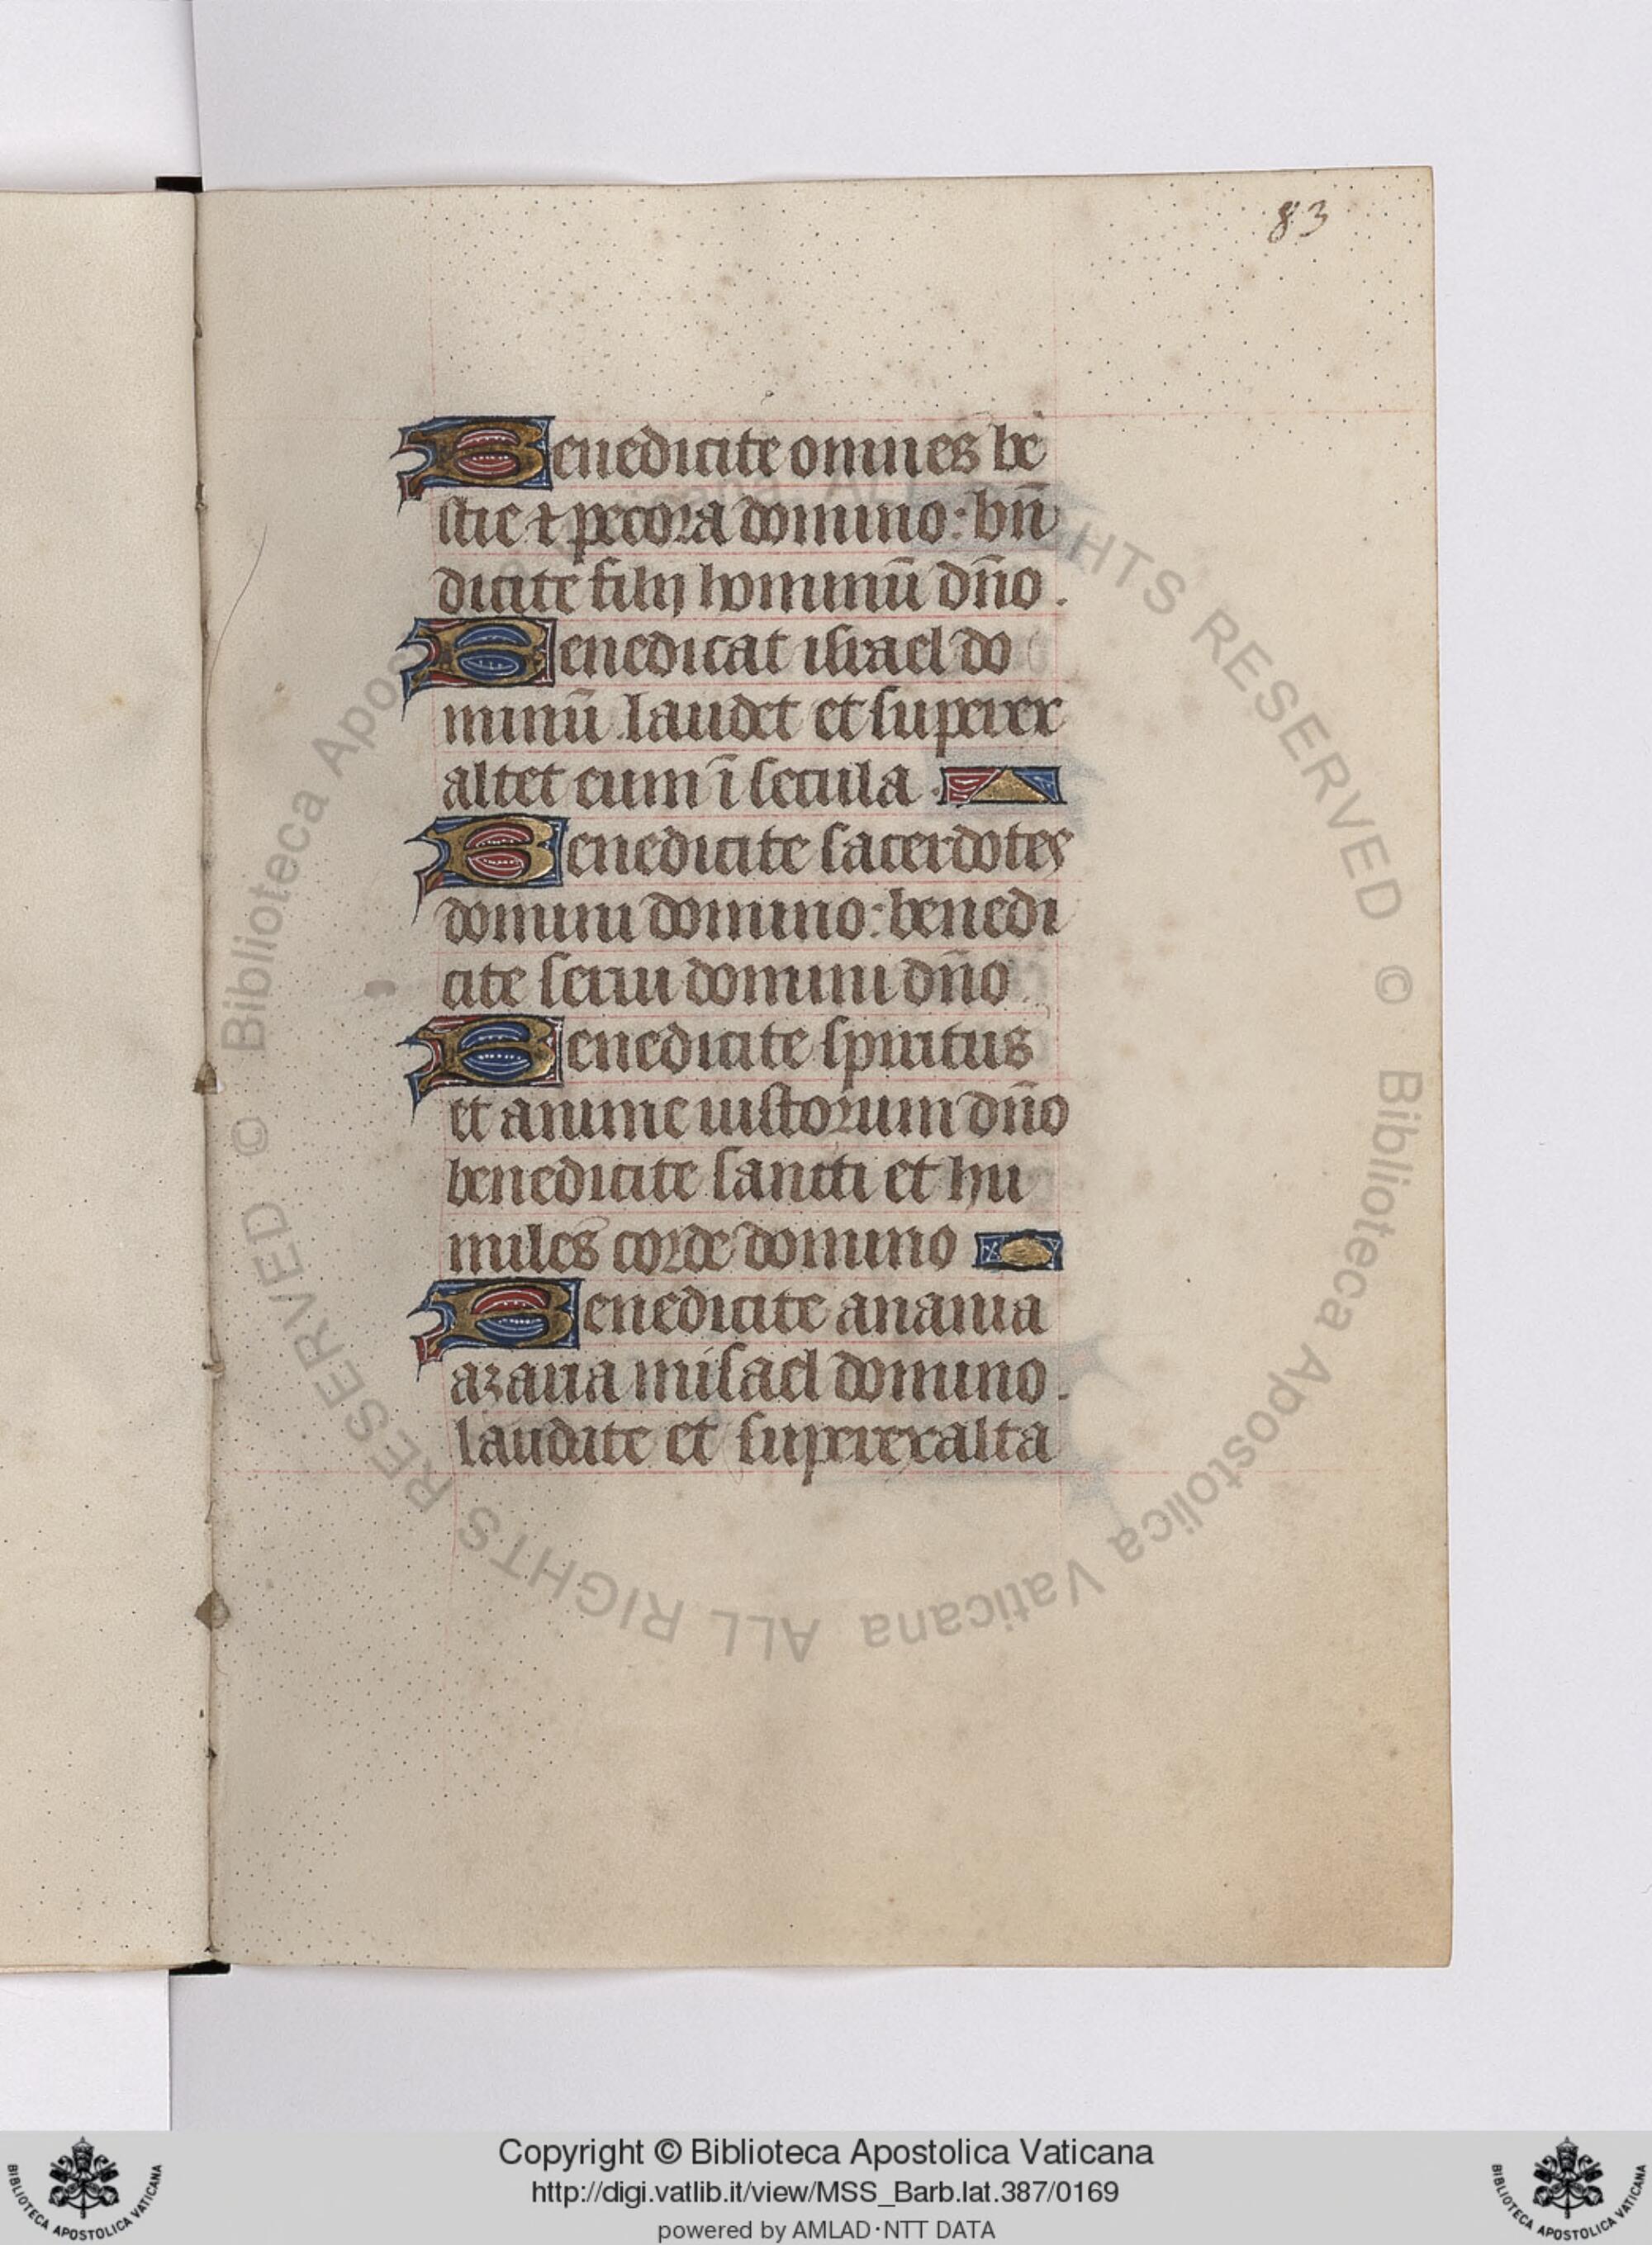 83
Benedicite omnes be
stie ⁊ pecora domino: bn̄
dicite filij hominū dn̄o.
Benedicat israel do
minū. laudet et superex
altet eum ī secula.
Benedicite sacerdotes
domini domino: benedi
cite serui domini dn̄o
Benedicite spiritus
et anime iustorum dn̄o
benedicite sancti et hu
miles corde domino
Benedicite anania
azaria misael domino.
laudate et superexalta
© Biblioteca Apostolica Vaticana ALL RIGHTS RESERVED
© Biblioteca Apostolica Vaticana ALL RIGHTS RESERVED
Copyright © Biblioteca Apostolica Vaticana
http://digi.vatlib.it/view/MSS_Barb.lat.387/0169
powered by AMLAD·NTT DATA
BIBLIOTECA APOSTOLICA VATICANA
BIBLIOTECA APOSTOLICA VATICANA